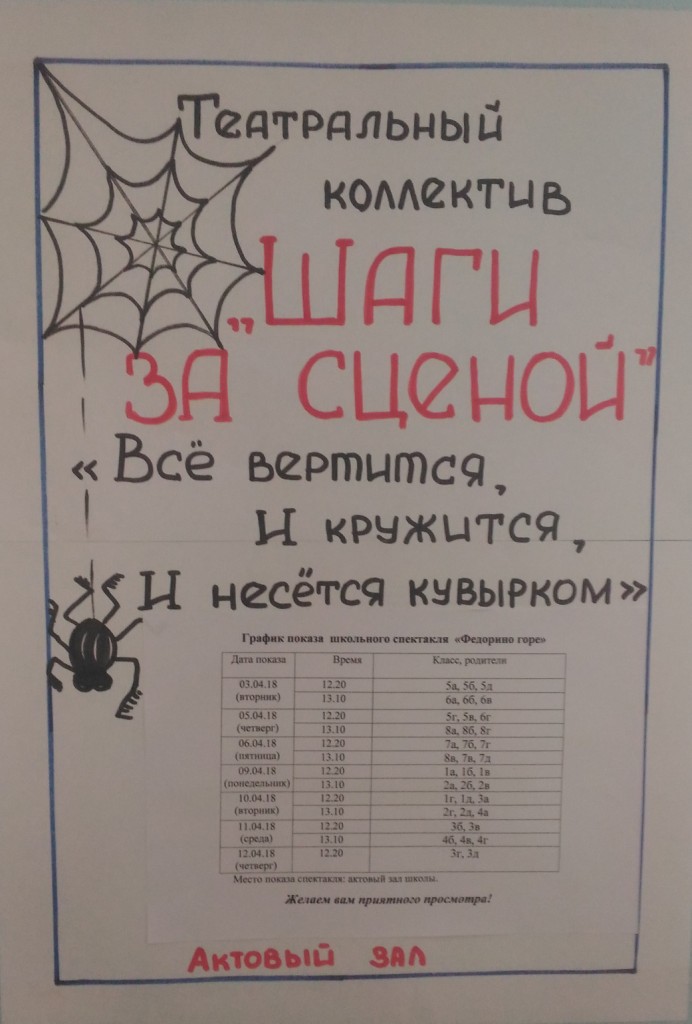 Театральный
коллектив
„Шаги
за сценой”
«Всё вертится,
И кружится,
И несётся кувырком»
График показа школьного спектакля «Федорино горе»
Дата показа Время Класс, родители
03.04.18 (вторник) 12.20 5а, 5б, 5д
13.10 6а, 6б, 6в
05.04.18 (четверг) 12.20 5г, 5в, 6г
13.10 8а, 8б, 8г
06.04.18 (пятница) 12.20 7а, 7б, 7г
13.10 8в, 7в, 7д
09.04.18 (понедельник) 12.20 1а, 1б, 1в
13.10 2а, 2б, 2в
10.04.18 (вторник) 12.20 1г, 1д, 3а
13.10 2г, 2д, 4а
11.04.18 (среда) 12.20 3б, 3в
13.10 4б, 4в, 4г
12.04.18 (четверг) 12.20 3г, 3д
Место показа спектакля: актовый зал школы.
Желаем вам приятного просмотра!
Актовый зал